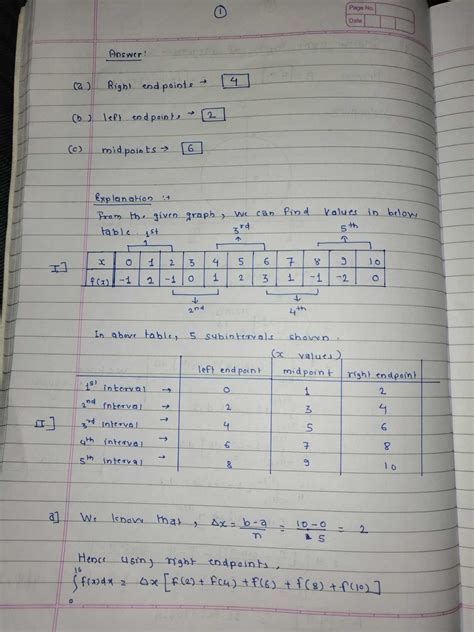 1
Page No.
Date
Answer:
(a) Right endpoints → 4
(b) left endpoints → 2
(c) midpoints → 6
Explanation :+
From the given graph, we can find values in below
table.
1st 3rd 5th
I]
x 0 1 2 3 4 5 6 7 8 9 10
f(x) -1 2 -1 0 1 2 3 1 -1 -2 0
2nd 4th
In above table, 5 subintervals shown.
(x values)
left endpoint midpoint right endpoint
II]
1st interval → 0 1 2
2nd interval → 2 3 4
3rd interval → 4 5 6
4th interval → 6 7 8
5th interval → 8 9 10
a] We know that, Δx = b-a/n = 10-0/5 = 2
Hence using right endpoints,
∫₀¹⁰ f(x)dx = Δx [f(2) + f(4) + f(6) + f(8) + f(10)]